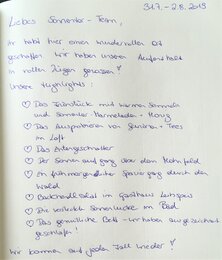 31.7. - 2.8.2013
Liebes Sonnentor - Team,
ihr habt hier einen wundervollen Ort
geschaffen. Wir haben unseren Aufenthalt
in vollen Zügen genossen!
Unsere Highlights:
♡ Das Frühstück mit warmen Semmeln
und Sonnentor-Marmeladen + Honig
♡ Das Ausprobieren von Säften + Tees
im Loft
♡ Das Entengeschnatter
♡ Der Sonnenaufgang über dem Mohnfeld
♡ Ein frühmorgendlicher Spaziergang durch den
Wald
♡ Backhendlsalat im Gasthaus
♡ Die verlockende im Bad
♡ Das gemütliche Bett - wir haben ausgezeichnet
geschlafen!
Wir kommen auf jeden Fall wieder!